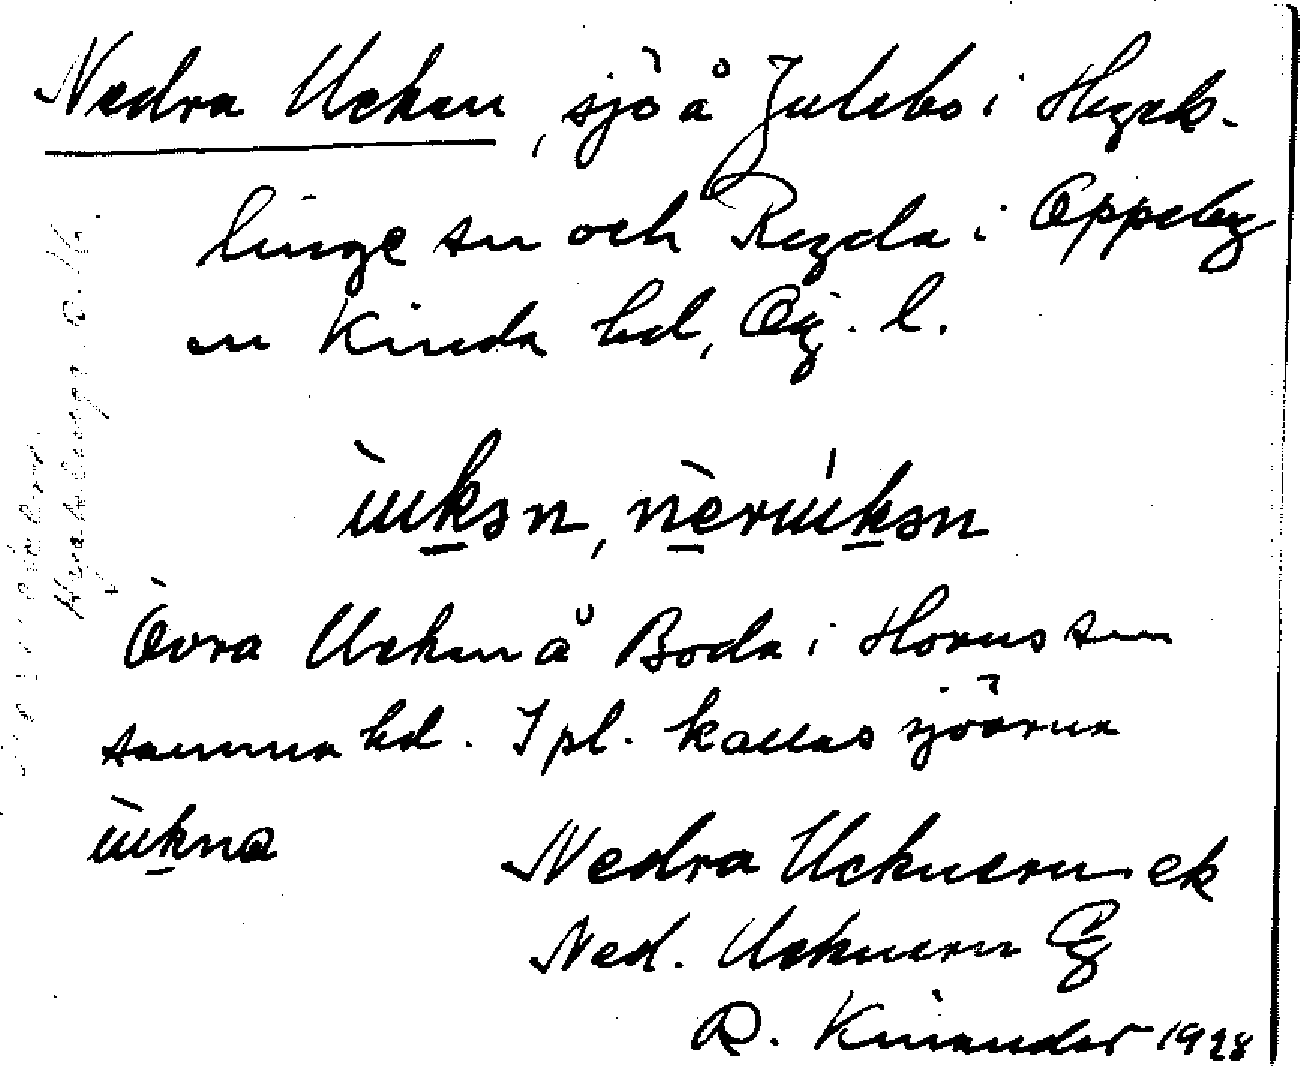 Nedra Ucken, sjö å Julebo i Hyck-
linge sn och Rugda i Oppeby
sn Kinda hd, Ög. l.
Övra Ucken å Boda i Horns sn
samma hd. I pl. kallas sjöarna
Nedra Ucknern ek
Ned. Ucknern
R. Kinander 1928